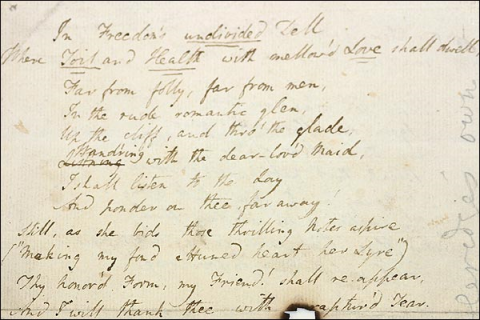 In Freedom's undivided Dell
Where Toil and Health with mellow'd Love shall dwell,
Far from folly, far from men,
In the rude romantic glen,
Up the cliff, and thro' the glade,
Wand'ring with the dear-lov'd Maid,
I shall listen to the Lay
And ponder on thee, far away!
Still, as she bids those thrilling Notes aspire
("Making my fond attuned heart her Lyre")
Thy honor'd Form, my Friend! shall re-appear,
And I will thank thee with raptur'd Tear.